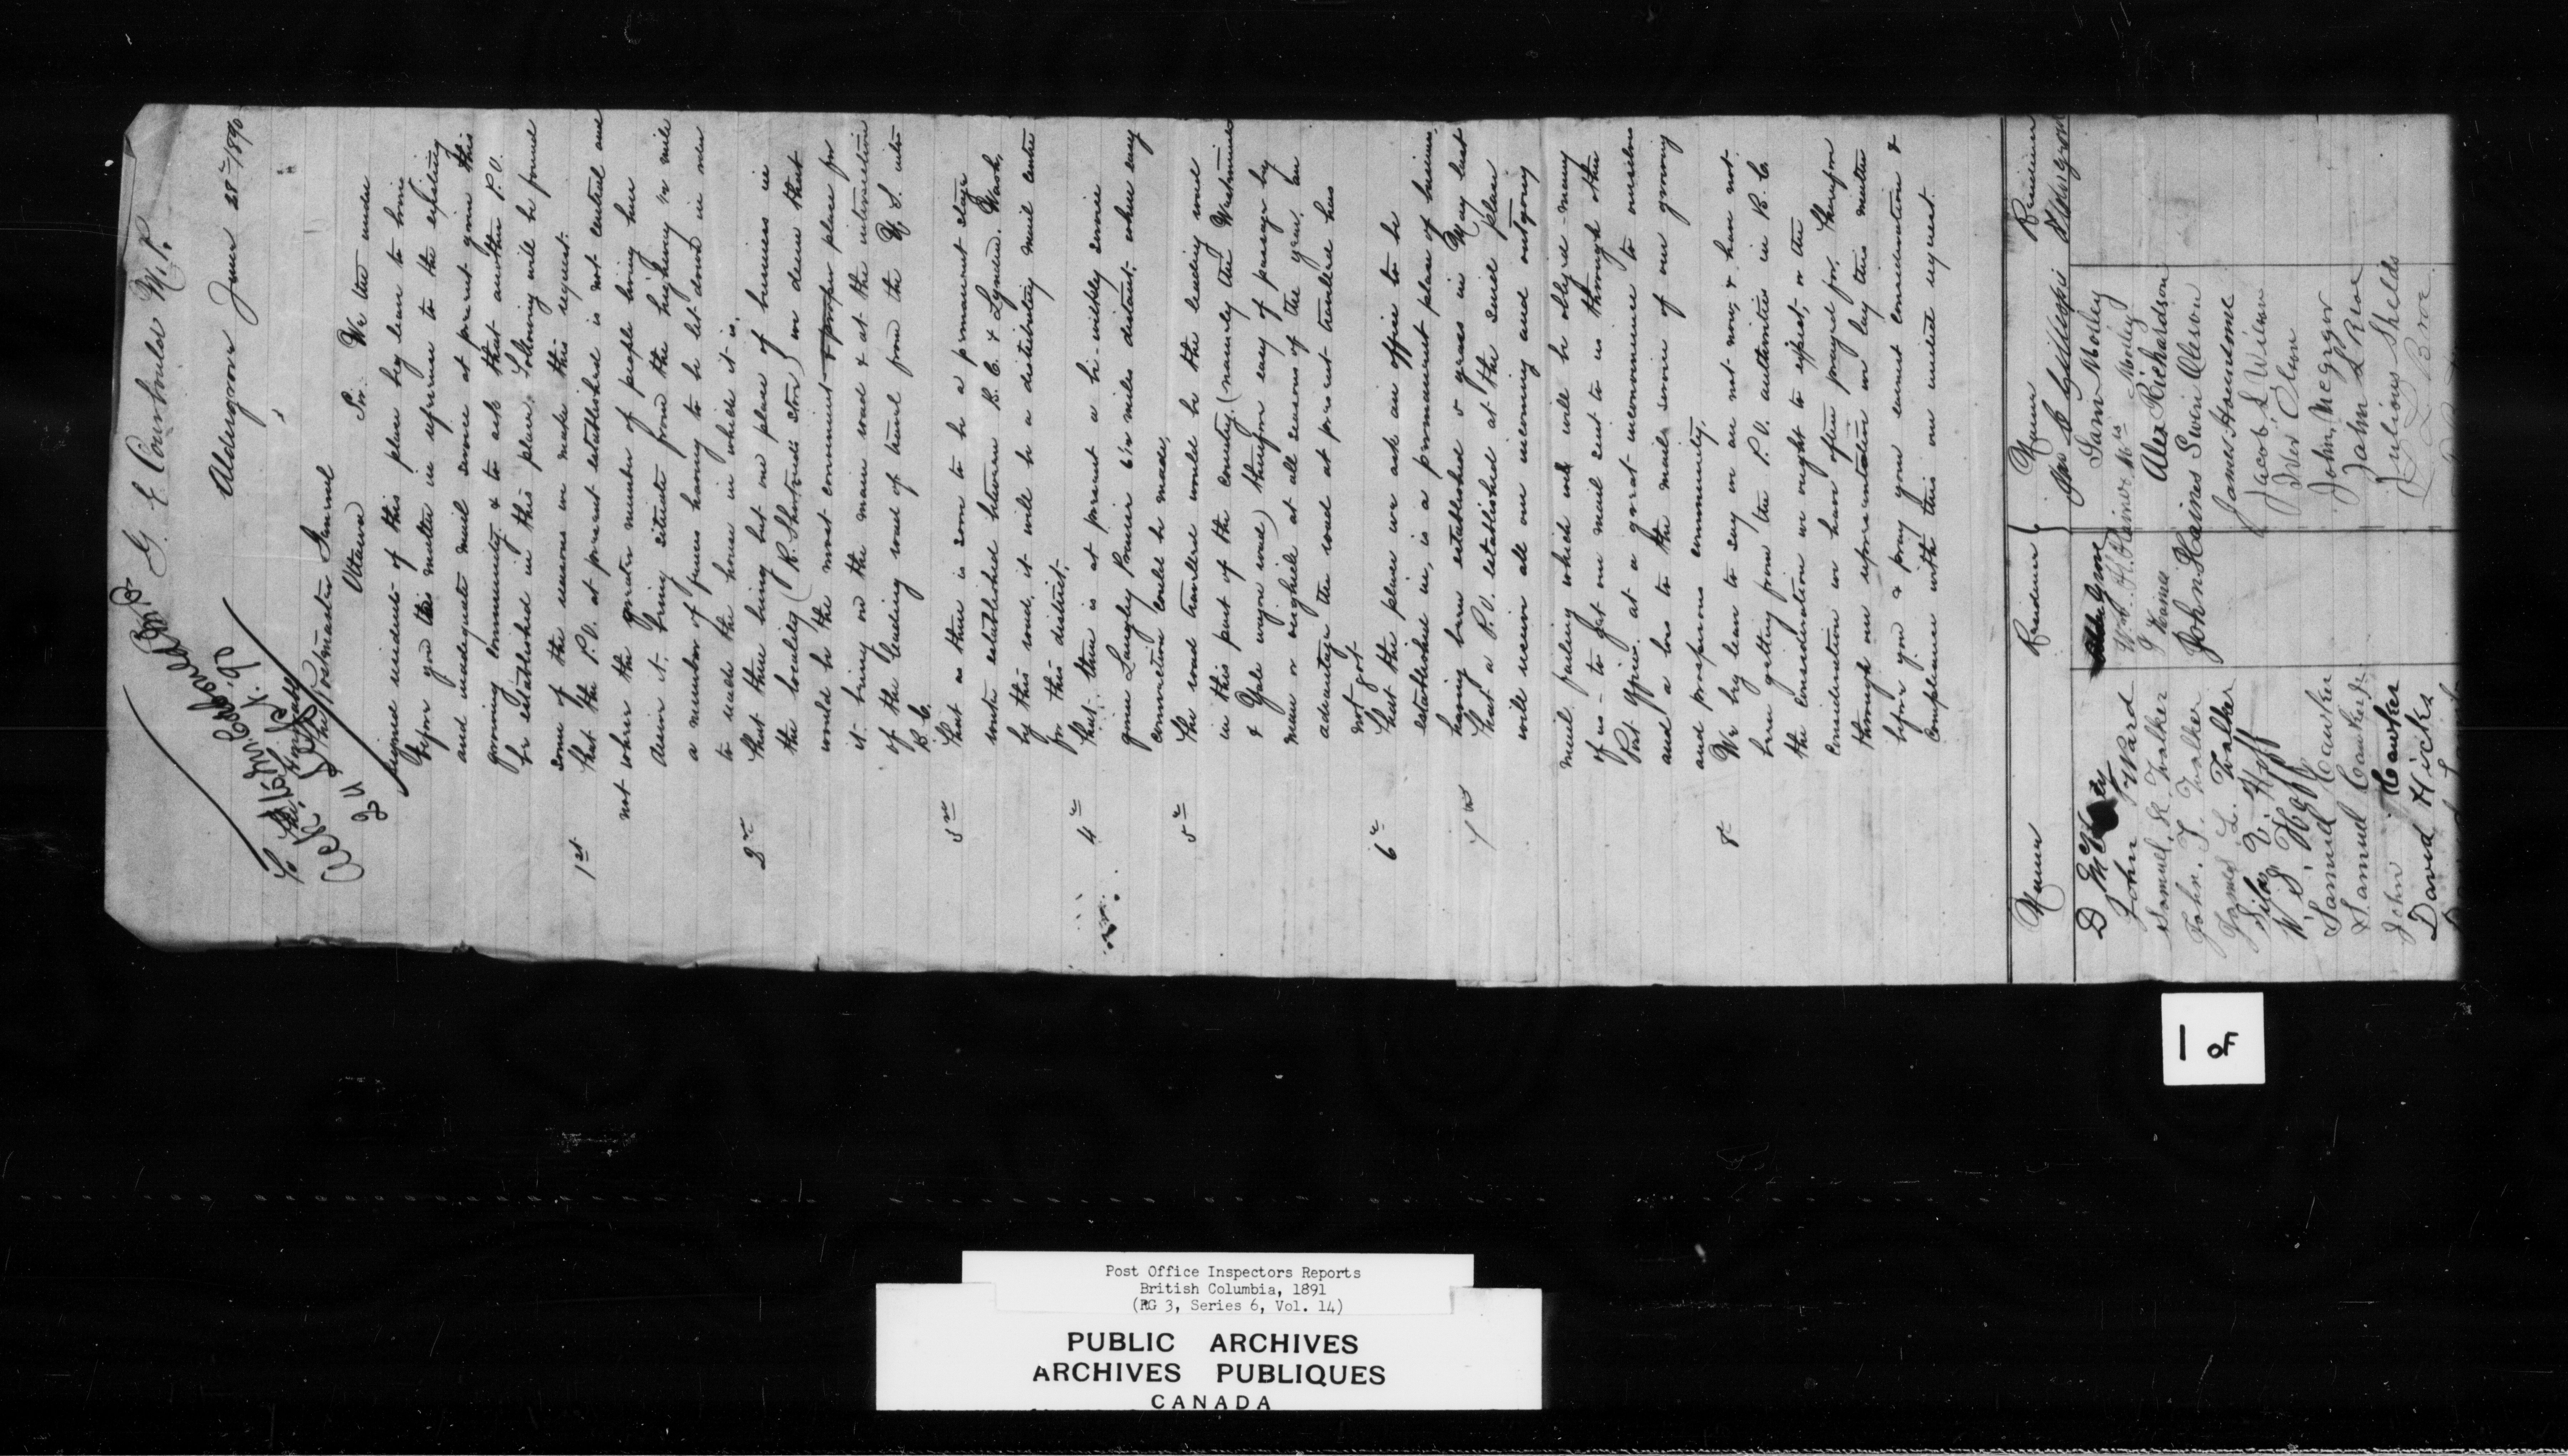 G. E. Corbould M.P.
Aldergrove June 28th/1890
To the Honorable
The Postmaster General
Ottawa
Sir. We the under
signed residents of this place beg leave to bring
before you this matter in reference to the existing
and inadequate mail service at present given this
growing community & to ask that another P.O.
be established in this place. Following will be found
some of the reasons we make this request.
1st That the P.O. at present established is not central and
not where the greater number of people living here
desire it. Being situate from the highway ½ mile
a number of fences having to be let down in order
to reach the house in which it is.
2nd That there being but one place of business in
the locality (R. Shortreeds Store) we deem that
would be the most convenient & proper place for
it being on the main road & at the intersection
of the leading road of travel from the U.S. into
B.C.
3rd That as there is soon to be a permanent stage
route established between B.C. & Lynden. Wash.
by this road, it will be a distributing mail centre
for this district.
4th That there is at present a bi-weekly service
from Langley Prairie 6½ miles distant, where easy
connection could be made.
5th The road travelled would be the leading road
in this part of the country (namely the Westminster
& Yale wagon road) therefore easy of passage by
man or vehicle at all seasons of the year. An
advantage the road at present travelled has
not got.
6th That the place we ask an office to be
established in, is a permanent place of business,
having been established 3 years in May last
7th That a P.O. established at the said place
will receive all our incoming and outgoing
mail failing which we will be obliged many
of us to get our mail sent to us through other
Post Offices at a great inconvenience to ourselves
and a loss to the mail service of our growing
and prosperous community.
8th We beg leave to say we are not now, & have not
been getting from the P.O. authorities in B.C.
the consideration we ought to expect, or the
consideration we have often prayed for, therefore
through our representation we lay this matter
before you & pray your earnest consideration &
compliance with this our united request.
Names Residence Names Residence
Jas C Gillespie Aldergrove
John Ward
Sam Morley
Samuel R Walker
Alex Richardson
John. T. Walker
John Haines Swen Oleson
James L. Walker
James Houndsome
Silas E. Hoff
W. S. Hoff
Samuel Cawker
Samuel Cawker Jr
John Cawker
John L Rice
David Hicks
Julious Shelds
1 OF
Post Office Inspectors Reports
British Columbia, 1891
(RG 3, Series 6, Vol. 14)
PUBLIC ARCHIVES
ARCHIVES PUBLIQUES
CANADA